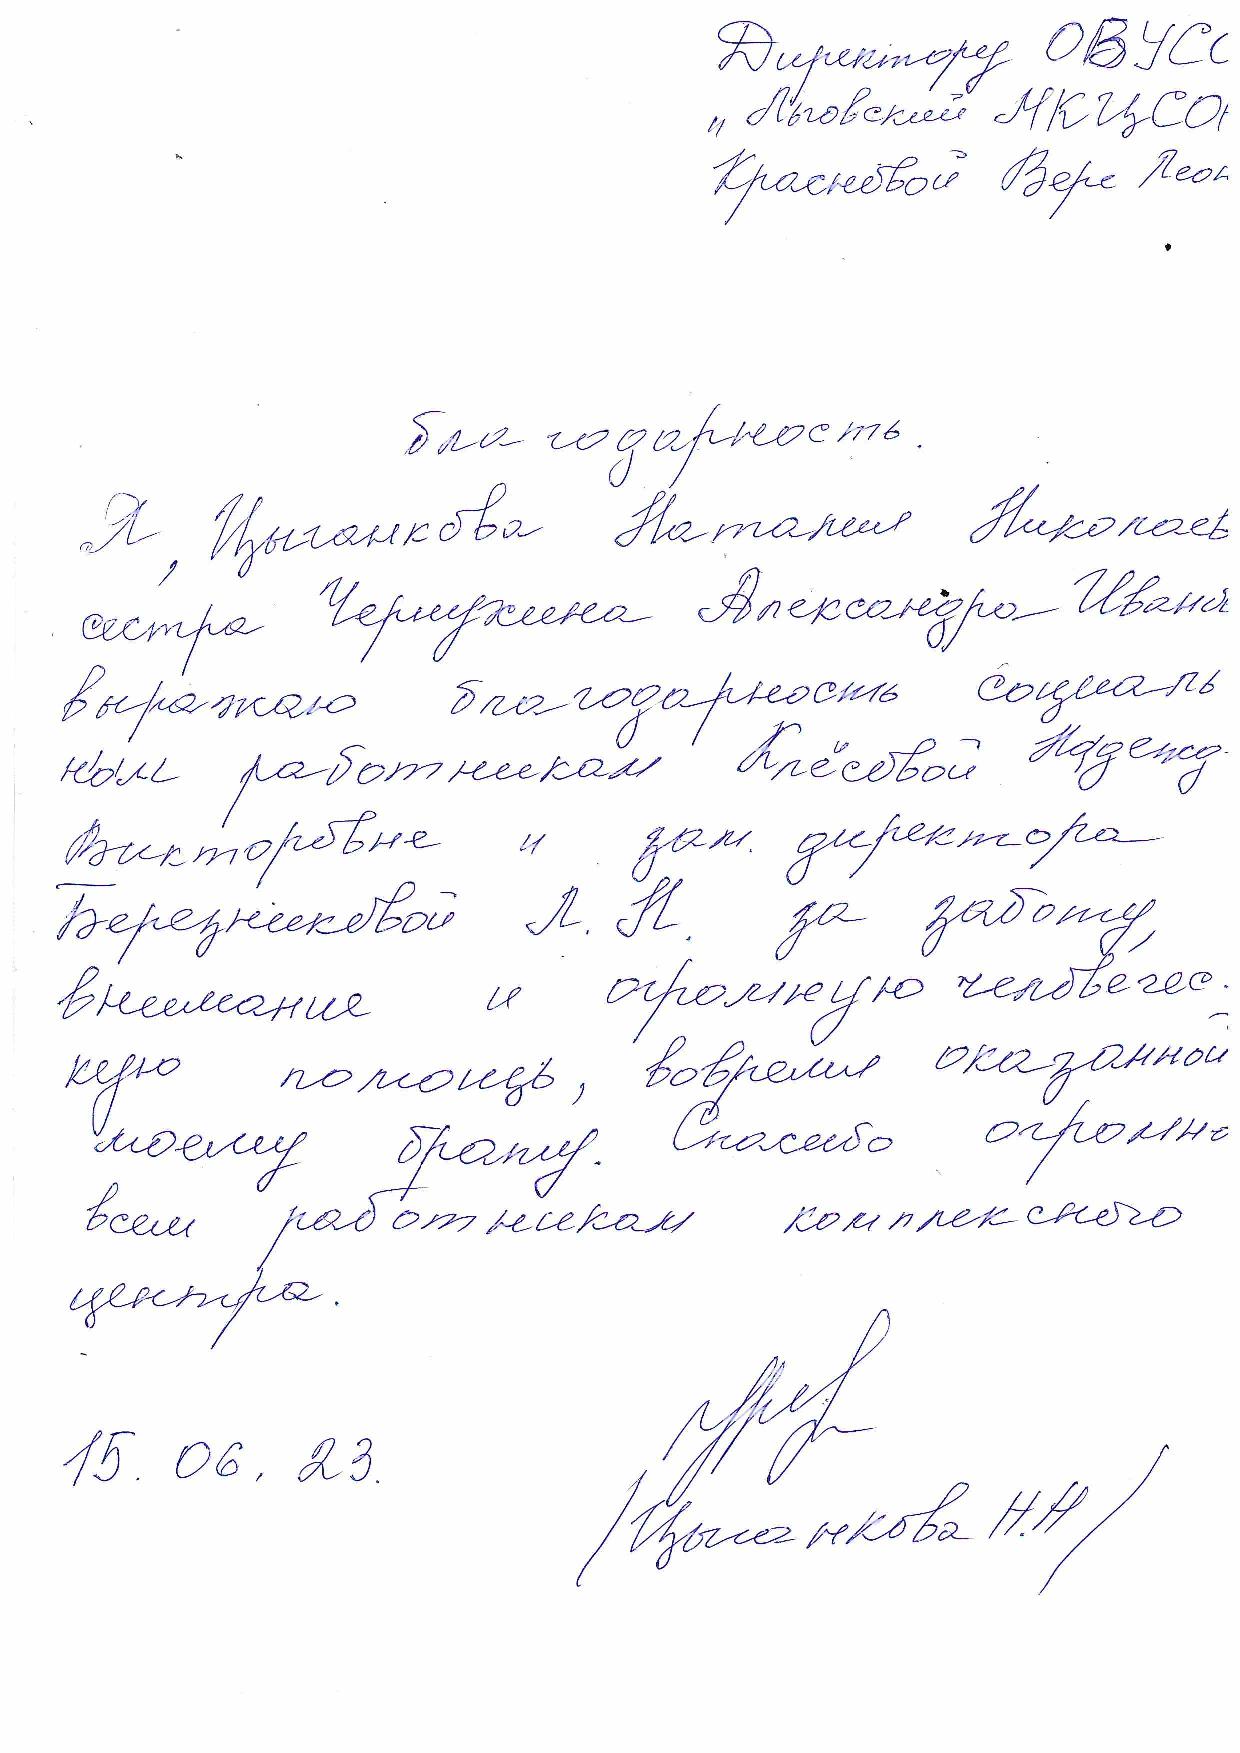 Директору ОБУСС
„Льговский МКЦСОН
Красновой Вере Леон
благодарность.
Я, Цыганкова Наталия Николаев
сестра Александра Ивано
выражаю благодарность социаль
ным работникам Клёсовой Надежд.
Викторовне и зам. директора
Березниковой Л. Н. за заботу,
внимание и огромную человечес.
кую помощь, вовремя оказанной
моему брату. Спасибо огромно
всем работникам комплексного
центра.
15. 06. 23.
/Цыганкова Н.Н/